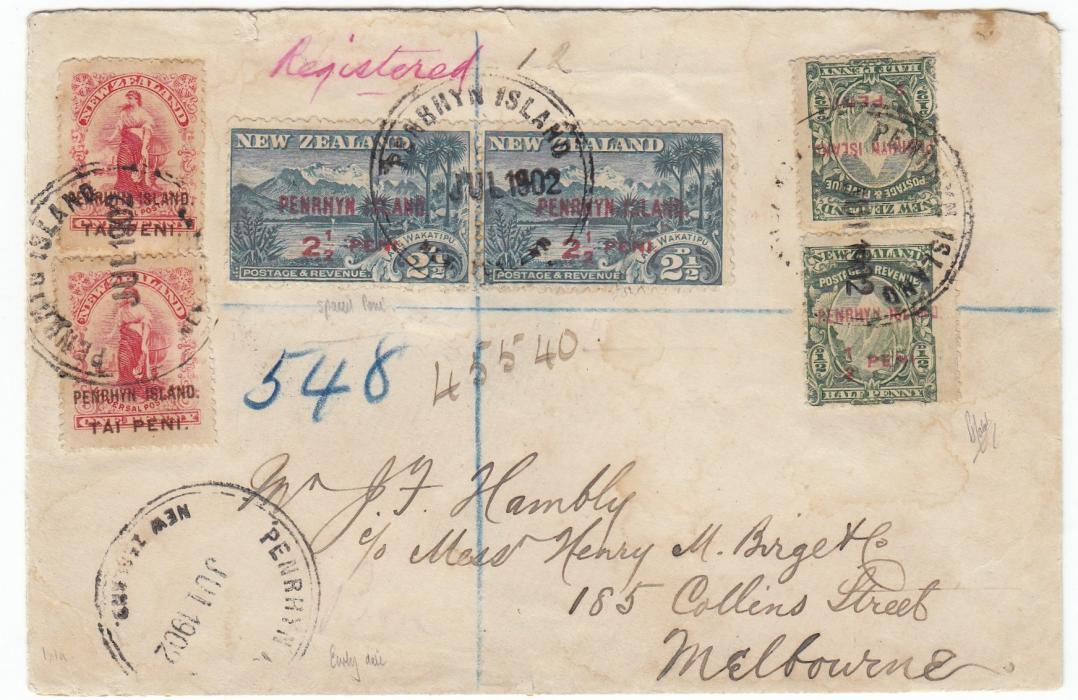 Registered 12
NEW ZEALAND
PENRHYN ISLAND.
TAI PENI.
NEW ZEALAND
PENRHYN ISLAND.
UNIVERSAL POSTAGE
TAI PENI.
PENRHYN ISLAND
JUL 1902
NEW ZEALAND
PENRHYN ISLAND.
2½ PENI.
LAKE WAKATIPU
POSTAGE & REVENUE
2½
NEW ZEALAND
PENRHYN ISLAND.
2½ PENI.
LAKE WAKATIPU
POSTAGE & REVENUE
2½
PENRHYN ISLAND
JUL 1902
HALF PENNY
½ PENI.
PENRHYN ISLAND.
POSTAGE & REVENUE
NEW ZEALAND
NEW ZEALAND
POSTAGE & REVENUE
PENRHYN ISLAND.
½ PENI.
HALF PENNY
PENRHYN ISLAND
1902
548
45540
Mr J. F. Hambly
c/o Mess Henry M. Birge & Co
185 Collins Street
Melbourne
PENRHYN
NEW ZEALAND.
JUL 1902
Early date